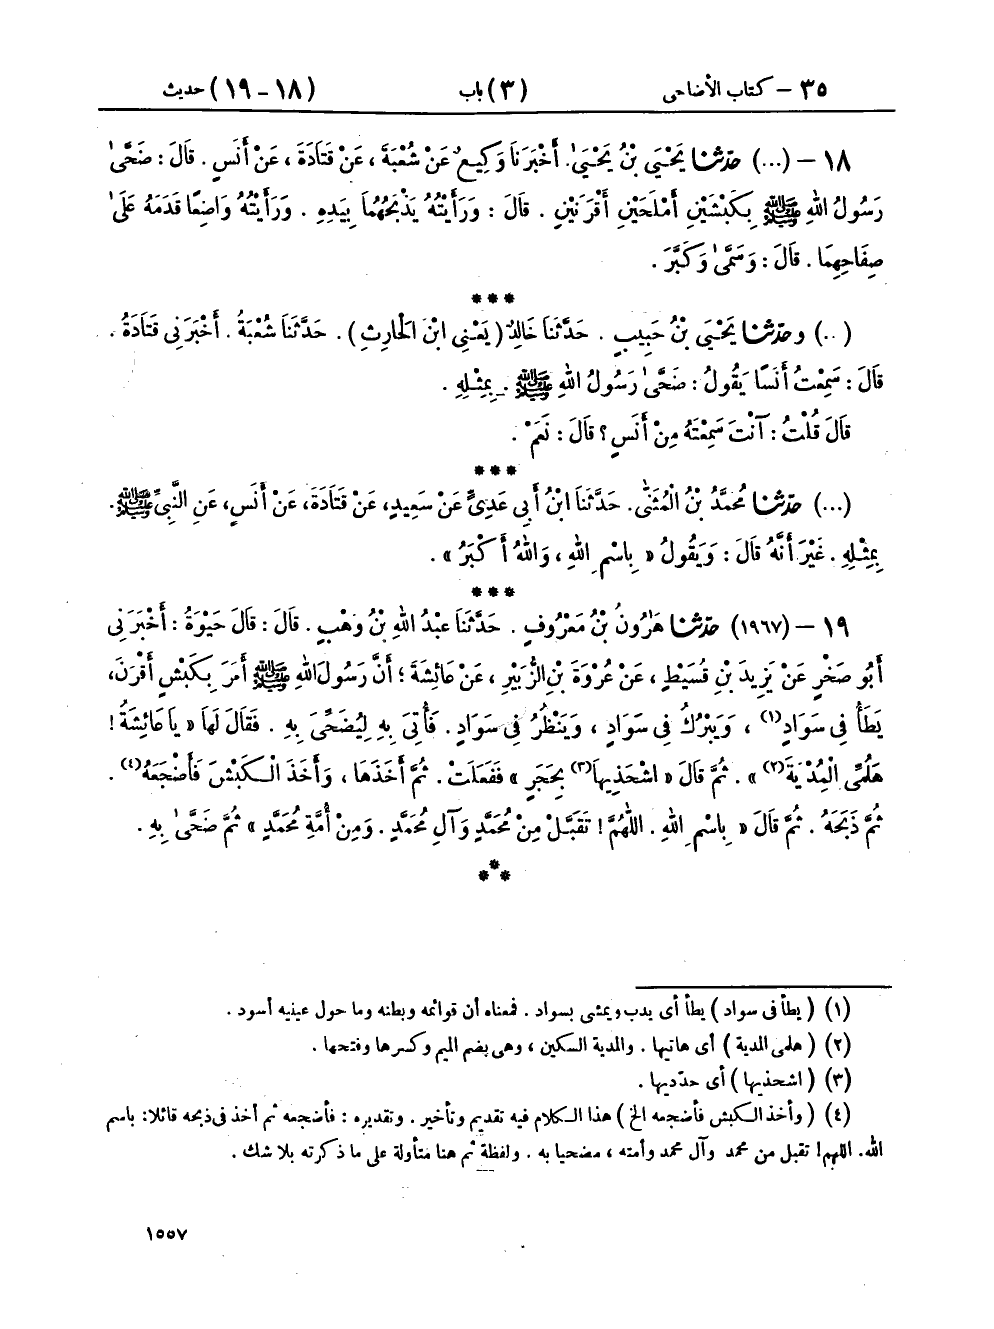 ٣٥ – كتاب الأضاحى (٣) باب (١٨ – ١٩) حديث
١٨ – (...) حدّثنا يَحْيَى بْنُ يَحْيَىٰ. أَخْبَرَنَا وَكِيعٌ عَنْ شُعْبَةَ، عَنْ قَتَادَةَ، عَنْ أَنَسٍ. قَالَ: ضَحَّىٰ
رَسُولُ اللهِ ﷺ بِكَبْشَيْنِ أَمْلَحَيْنِ أَقْرَنَيْنِ. قَالَ: وَرَأَيْتُهُ يَذْبَحُهُمَا بِيَدِهِ. وَرَأَيْتُهُ وَاضِعًا قَدَمَهُ عَلَىٰ
صِفَاحِهِمَا. قَالَ: وَسَمَّىٰ وَكَبَّرَ.
***
(..) وحدّثنا يَحْيَى بْنُ حَبِيبٍ. حَدَّثَنَا خَالِدٌ (يَعْنِي ابْنَ الْحَارِثِ). حَدَّثَنَا شُعْبَةُ. أَخْبَرَنِى قَتَادَةُ.
قَالَ: سَمِعْتُ أَنَسًا يَقُولُ: ضَحَّىٰ رَسُولُ اللهِ ﷺ. بِمِثْلِهِ.
قَالَ قُلْتُ: آنْتَ سَمِعْتَهُ مِنْ أَنَسٍ؟ قَالَ: نَعَمْ.
***
(...) حدّثنا مُحَمَّدُ بْنُ الْمُثَنَّى. حَدَّثَنَا ابْنُ أَبِى عَدِىٍّ عَنْ سَعِيدٍ، عَنْ قَتَادَةَ، عَنْ أَنَسٍ، عَنِ النَّبِىِّ ﷺ.
بِمِثْلِهِ. غَيْرَ أَنَّهُ قَالَ: وَيَقُولُ «بِاسْمِ اللهِ، وَاللهُ أَكْبَرُ».
***
١٩ – (١٩٦٧) حدّثنا هَٰرُونُ بْنُ مَعْرُوفٍ. حَدَّثَنَا عَبْدُ اللهِ بْنُ وَهْبٍ. قَالَ: قَالَ حَيْوَةُ: أَخْبَرَنِى
أَبُو صَخْرٍ عَنْ يَزِيدَ بْنِ قُسَيْطٍ، عَنْ عُرْوَةَ بْنِ الزُّبَيْرِ، عَنْ عَائِشَةَ؛ أَنَّ رَسُولَ اللهِ ﷺ أَمَرَ بِكَبْشٍ أَقْرَنَ،
يَطَأُ فِى سَوَادٍ(١)، وَيَبْرُكُ فِى سَوَادٍ، وَيَنْظُرُ فِى سَوَادٍ. فَأُتِىَ بِهِ لِيُضَحِّىَ بِهِ. فَقَالَ لَهَا «يَا عَائِشَةُ!
هَلُمِّى الْمُدْيَةَ(٢)». ثُمَّ قَالَ «اشْحَذِيهَا(٣) بِحَجَرٍ» فَفَعَلَتْ. ثُمَّ أَخَذَهَا، وَأَخَذَ الْكَبْشَ فَأَضْجَعَهُ(٤).
ثُمَّ ذَبَحَهُ. ثُمَّ قَالَ «بِاسْمِ اللهِ. اللّٰهُمَّ! تَقَبَّلْ مِنْ مُحَمَّدٍ وَآلِ مُحَمَّدٍ. وَمِنْ أُمَّةِ مُحَمَّدٍ» ثُمَّ ضَحَّىٰ بِهِ.
***
(١) (يطأ فى سواد) يطأ أى يدب ويمشى بسواد. فمعناه أن قوائمه وبطنه وما حول عينيه أسود.
(٢) (هلمى المدية) أى هاتيها. والمدية السكين، وهى بضم الميم وكسرها وفتحها.
(٣) (اشحذيها) أى حدّديها.
(٤) (وأخذ الكبش فأضجعه الخ) هذا الكلام فيه تقديم وتأخير. وتقديره: فأضجعه ثم أخذ فى ذبحه قائلا: باسم
الله. اللهم! تقبل من محمد وآل محمد وأمته، مضحيا به. ولفظة ثم هنا متأولة على ما ذكرته بلا شك.
١٥٥٧